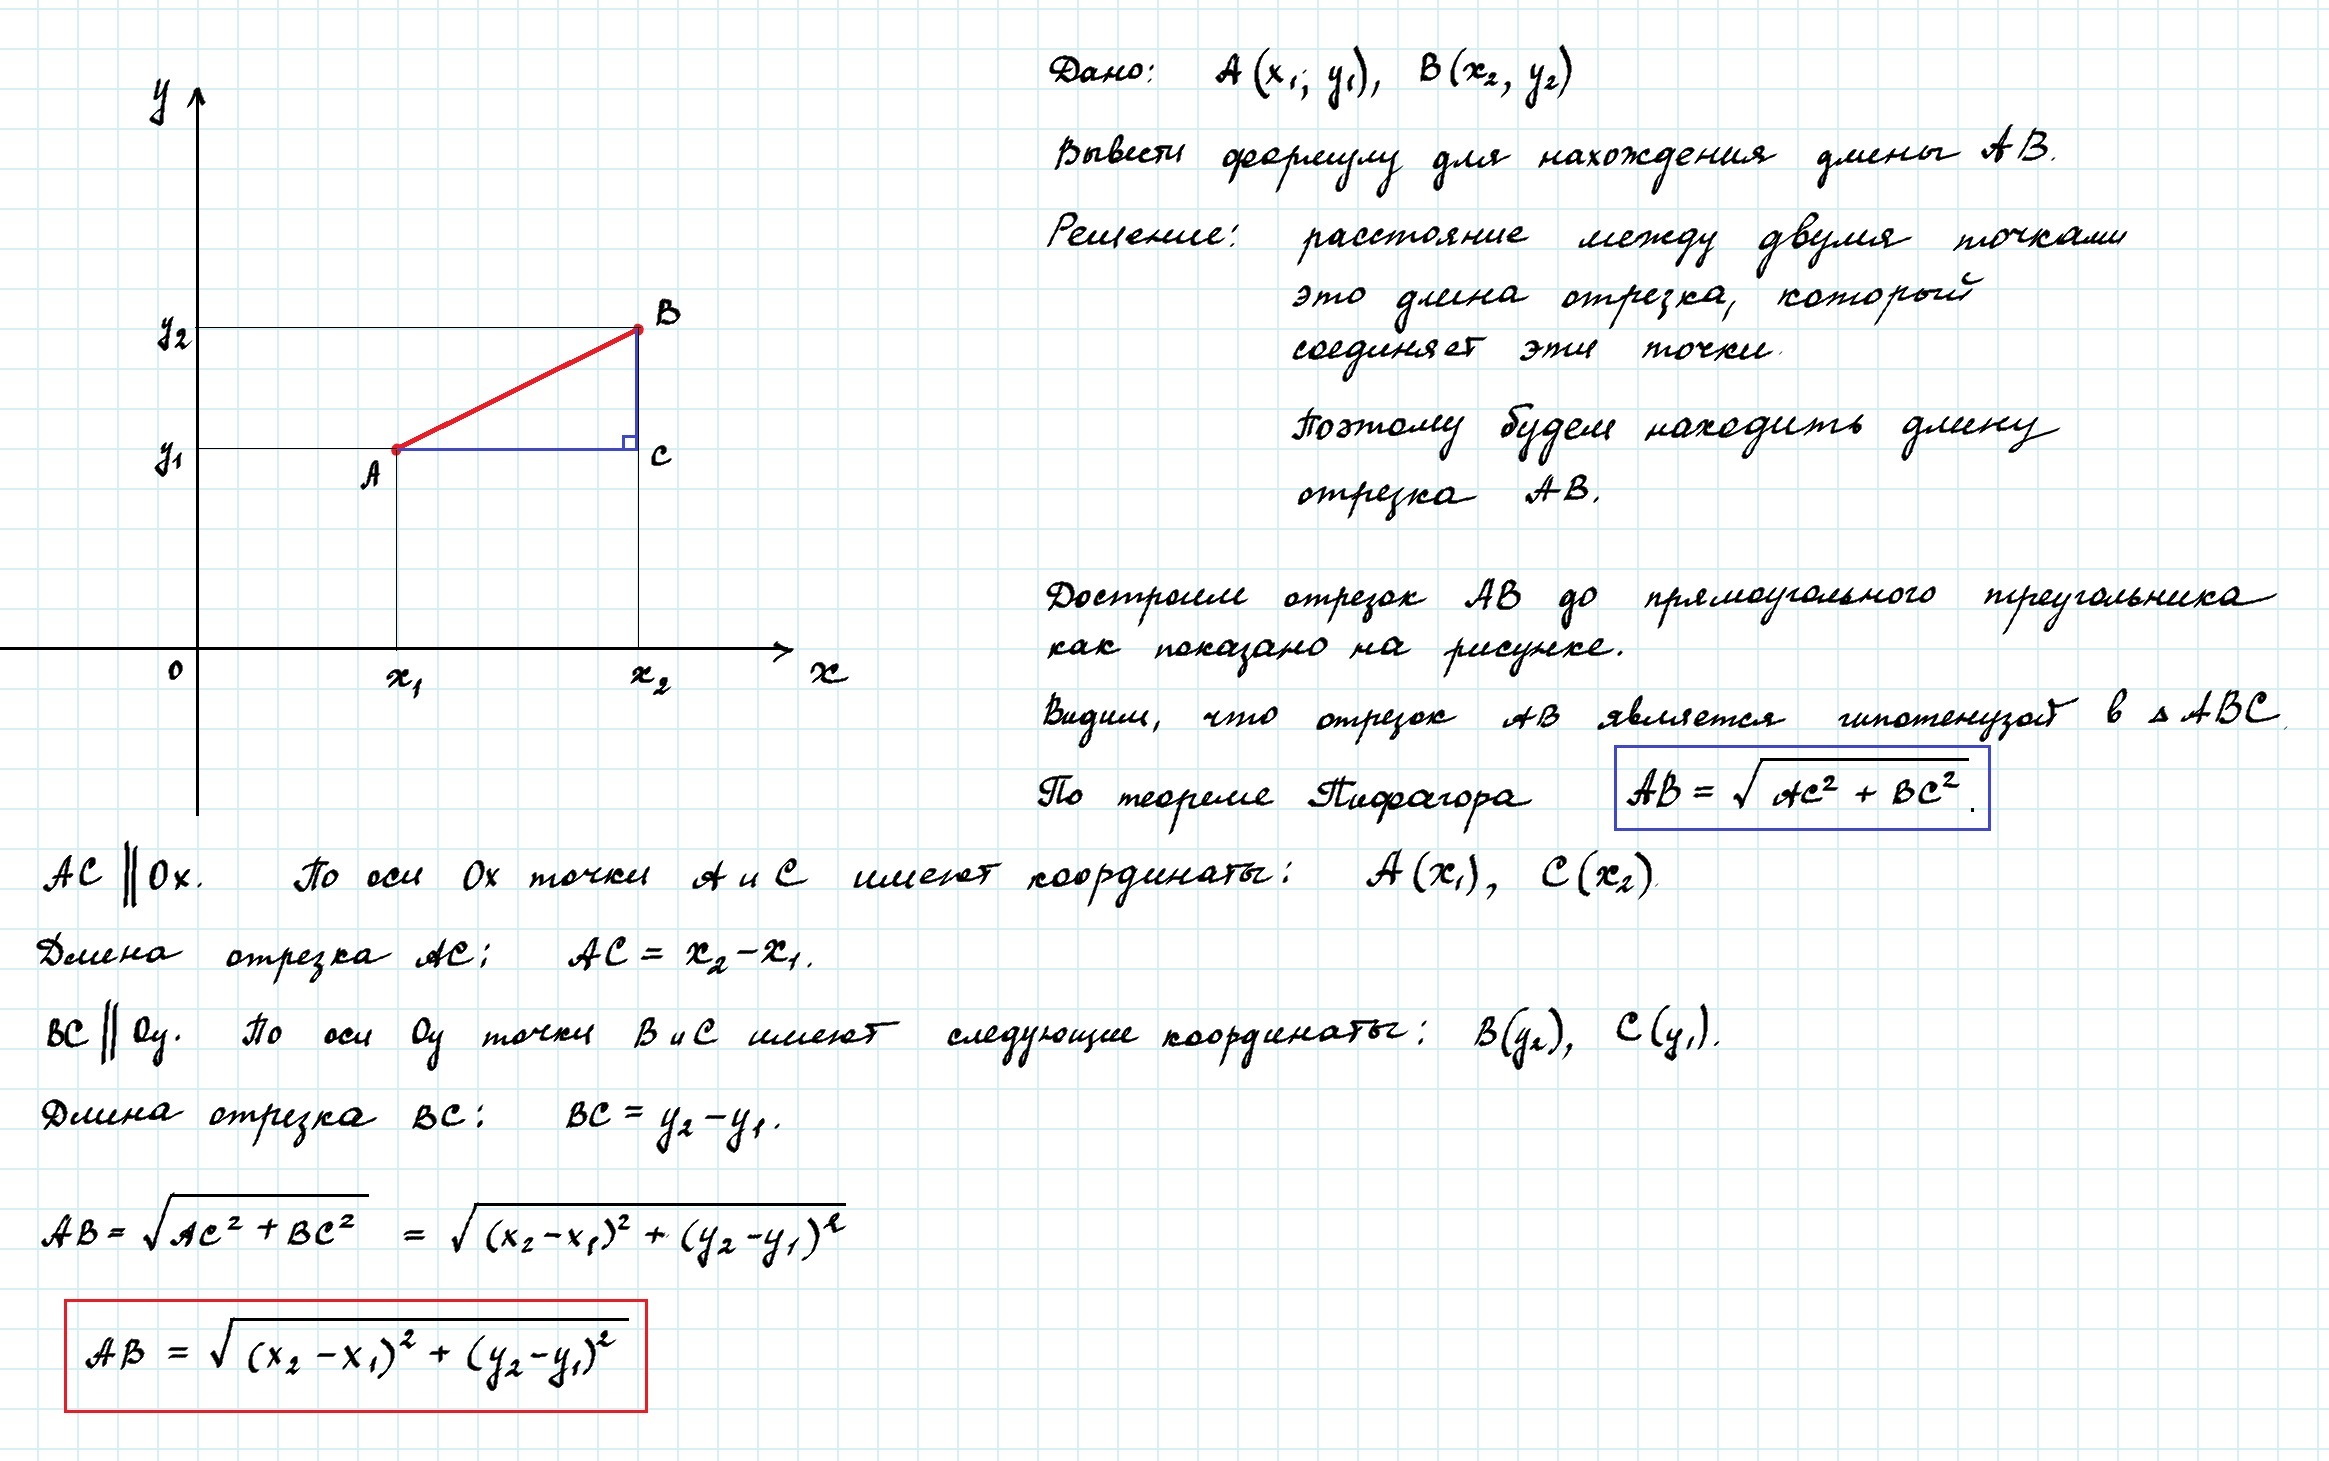 y
y₂
B
y₁
A
C
0
x₁
x₂
x
Дано: A(x₁; y₁), B(x₂, y₂)
Вывести формулу для нахождения длины AB.
Решение: расстояние между двумя точками
это длина отрезка, который
соединяет эти точки.
Поэтому будем находить длину
отрезка AB.
Достроим отрезок AB до прямоугольного треугольника
как показано на рисунке.
Видим, что отрезок AB является гипотенузой в △ABC.
По теореме Пифагора AB = √(AC² + BC²).
AC || Ox. По оси Ox точки A и C имеют координаты: A(x₁), C(x₂).
Длина отрезка AC: AC = x₂ − x₁.
BC || Oy. По оси Oy точки B и C имеют следующие координаты: B(y₂), C(y₁).
Длина отрезка BC: BC = y₂ − y₁.
AB = √(AC² + BC²) = √((x₂ − x₁)² + (y₂ − y₁)²)
AB = √((x₂ − x₁)² + (y₂ − y₁)²)